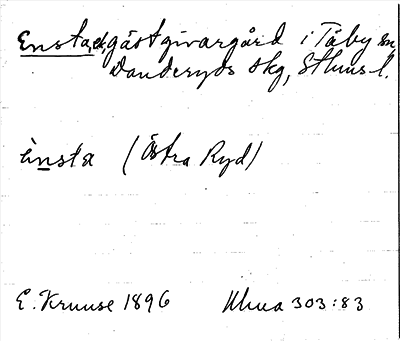 Ensta, d, gästgivargård i Täby sn,
Danderyds skg, Sthms l.
ènsta (Östra Ryd)
E. Kruuse 1896 Uhua 303:83